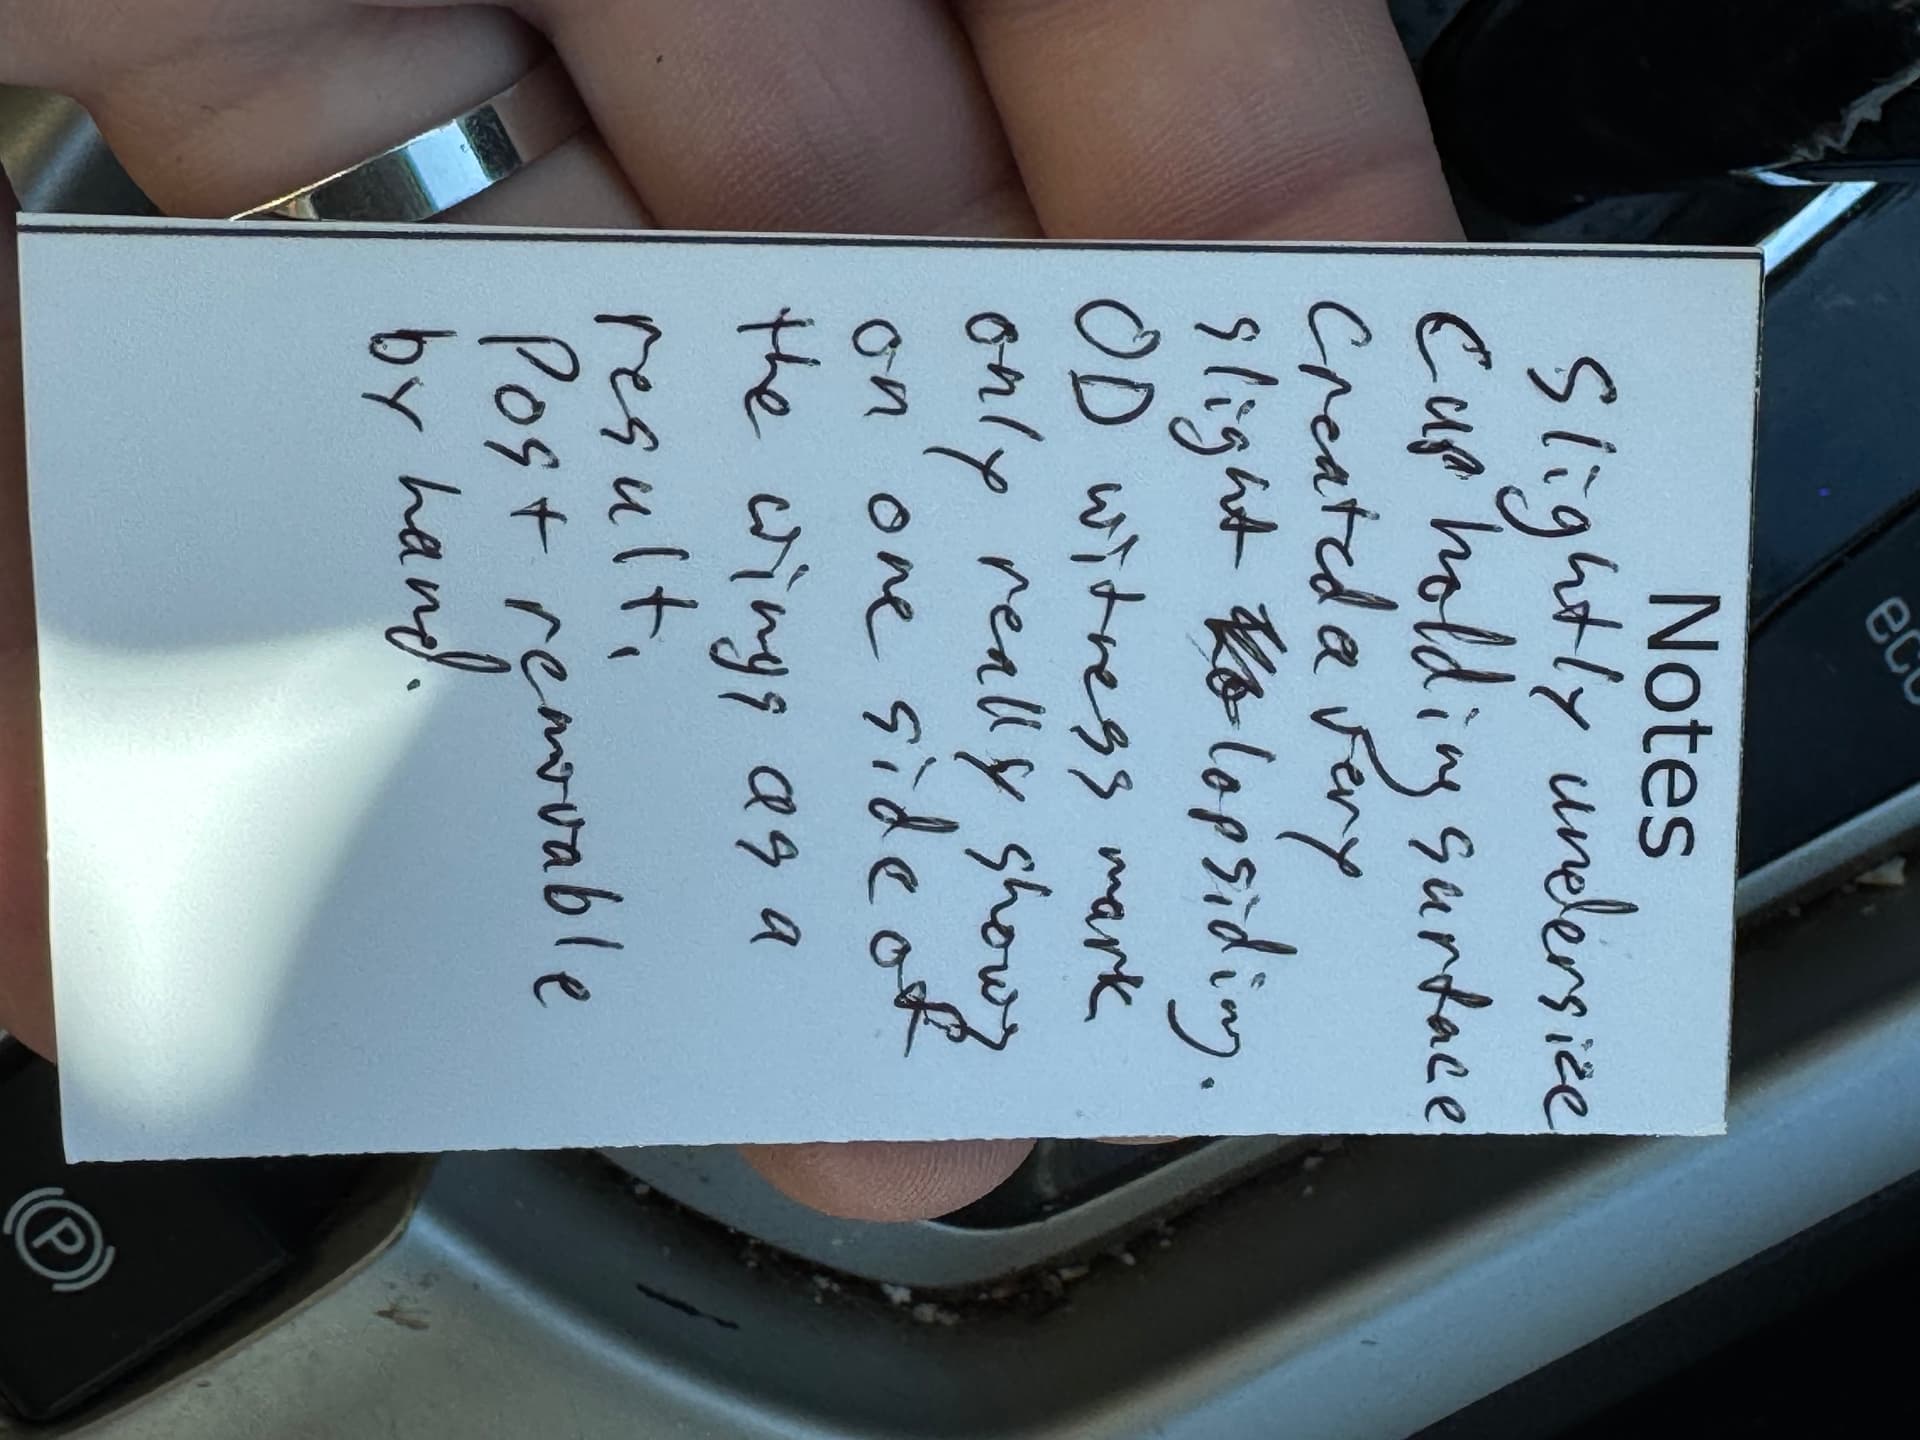 Notes
Slightly undersize
Cup holding surface
Created a very
slight lopsiding.
OD witness mark
only really shows
on one side of
the wings as a
result.
Post removable
by hand.
eco
P